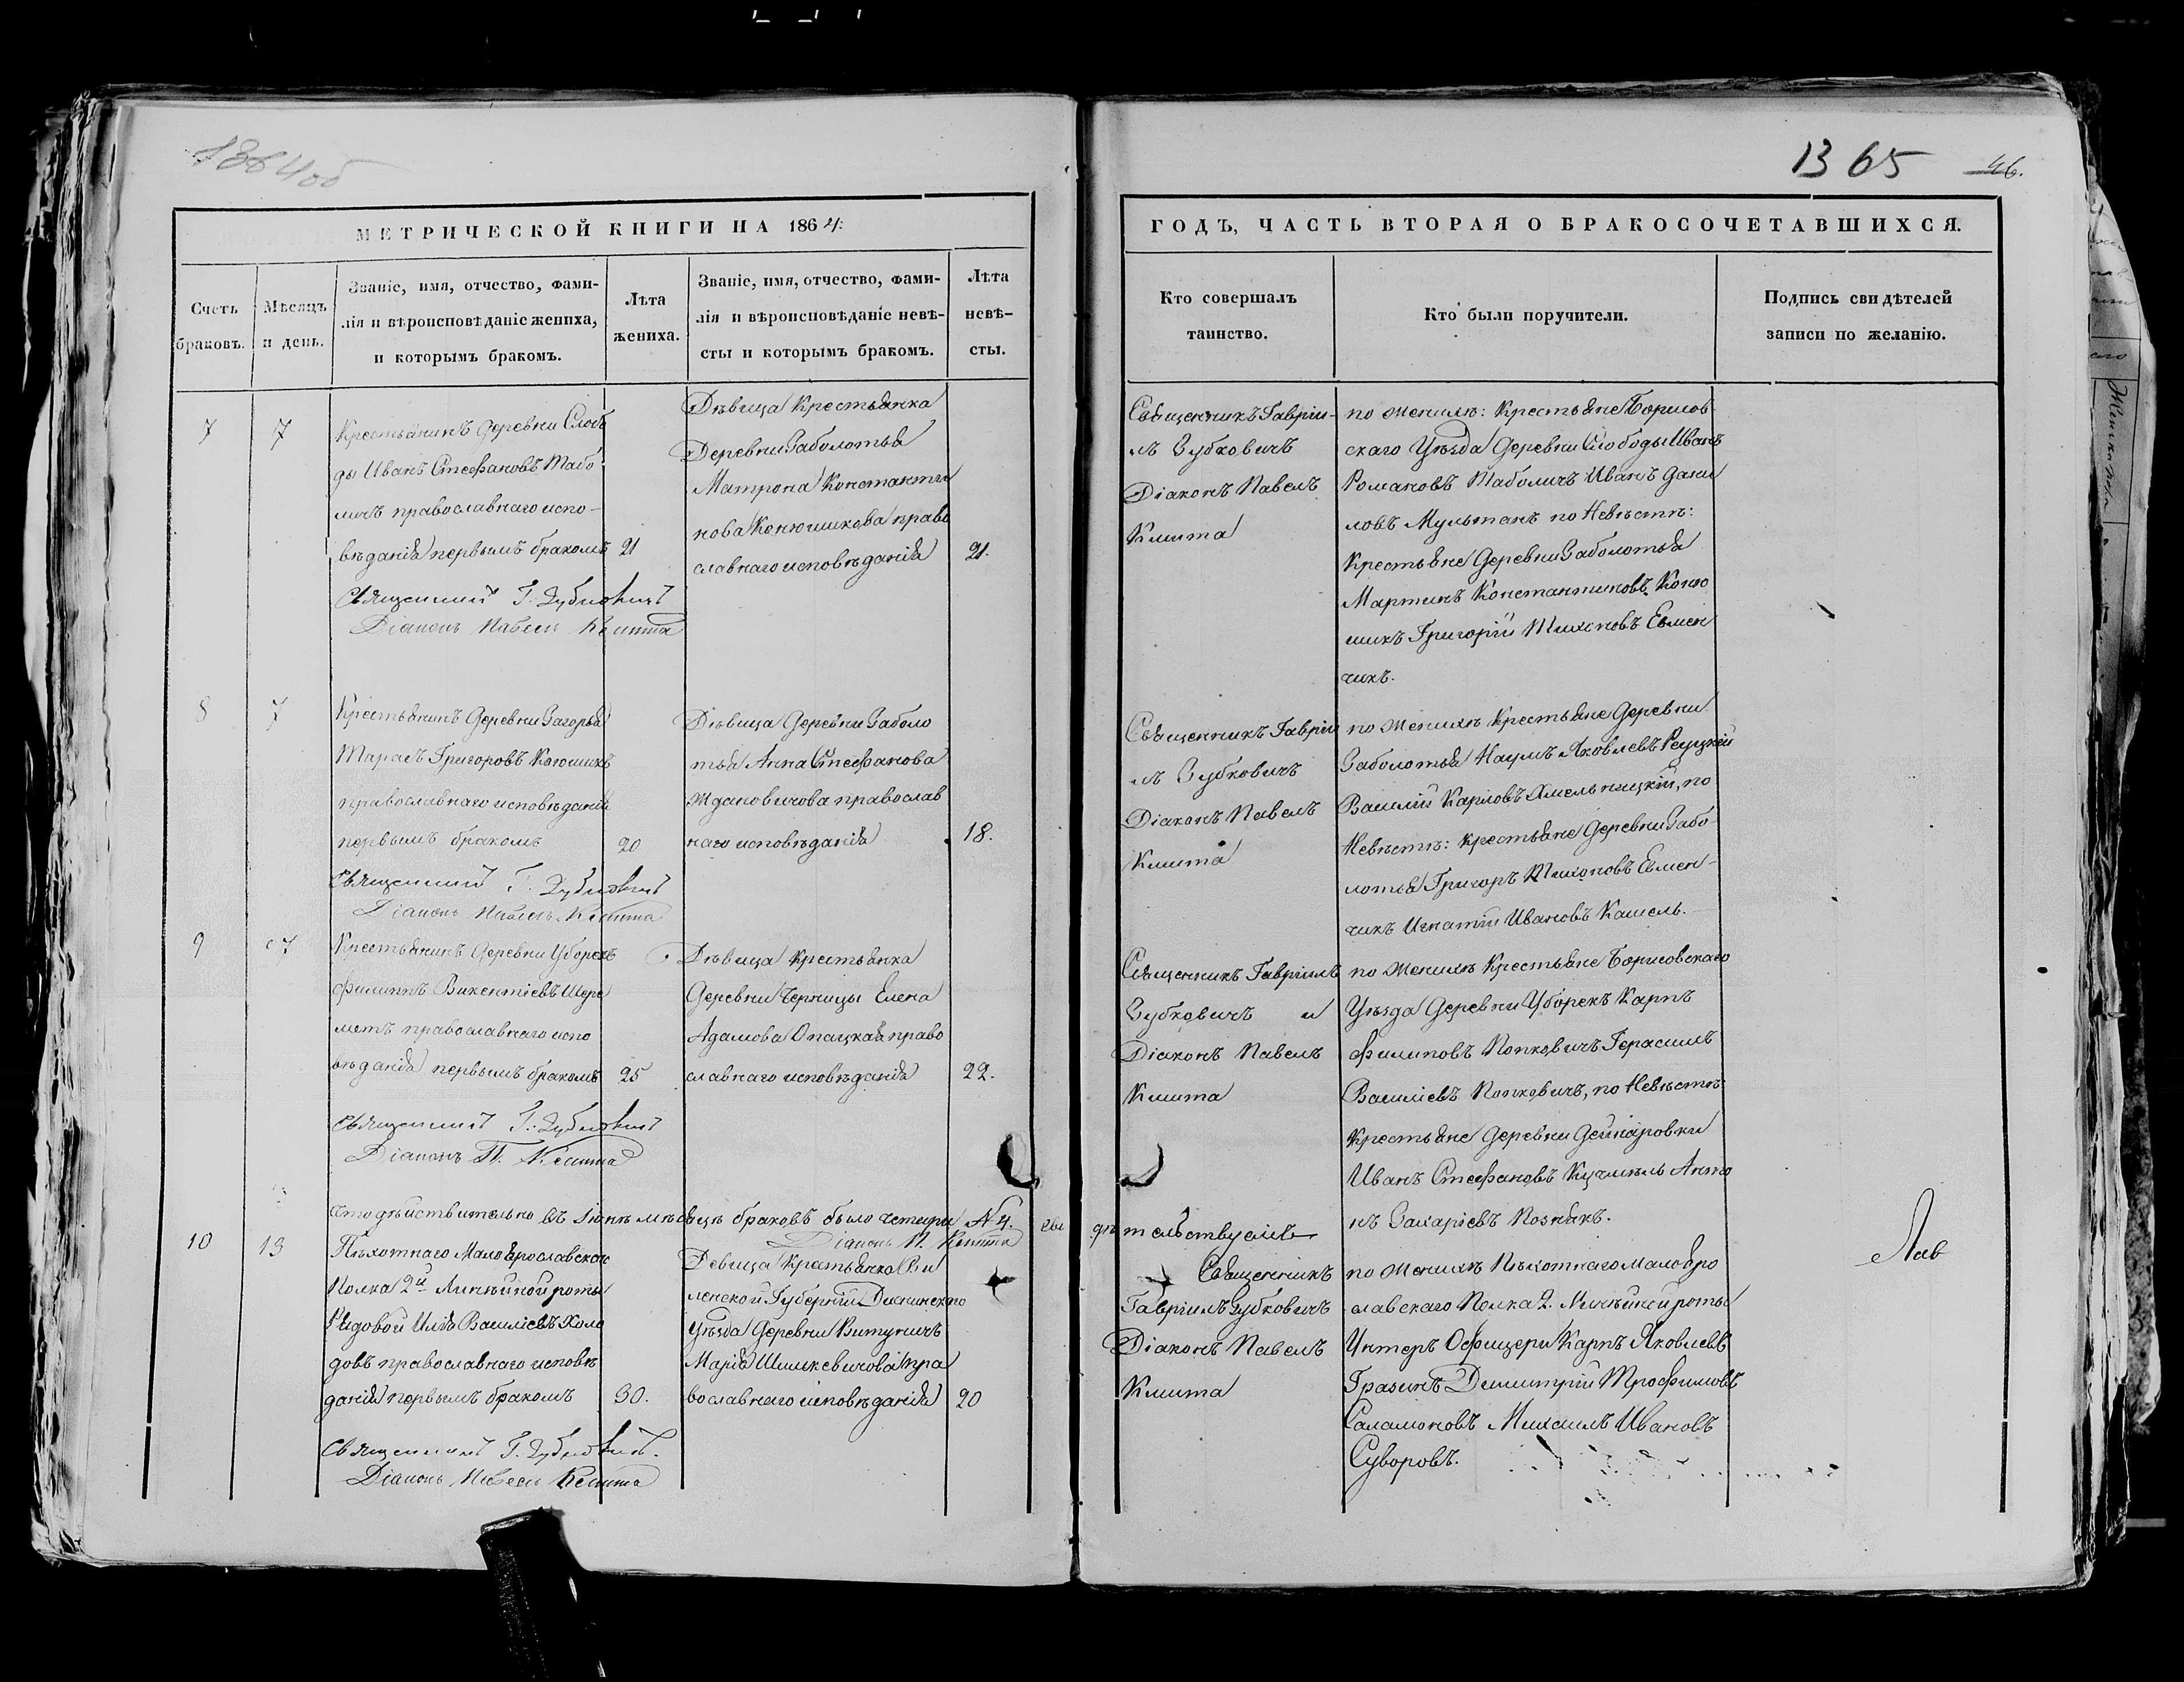 1364об
1365 46.
МЕТРИЧЕСКОЙ КНИГИ НА 1864:
ГОДЪ, ЧАСТЬ ВТОРАЯ О БРАКОСОЧЕТАВШИХСЯ.
Счетъ
браковъ.
Мѣсяцъ
и день.
Званіе, имя, отчество, фами-
лія и вѣроисповѣданіе жениха,
и которымъ бракомъ.
Лѣта
жениха.
Званіе, имя, отчество, фами-
лія и вѣроисповѣданіе невѣ-
сты и которымъ бракомъ.
Лѣта
невѣ-
сты.
Кто совершалъ
таинство.
Кто были поручители.
Подпись свидѣтелей
записи по желанію.
7
7
Крестьянинъ деревни Слобо
ды Иванъ Стефановъ Табо-
личъ православнаго испо-
вѣданія первымъ бракомъ
21
Священникъ Г. Зубковичъ
Діаконъ Павелъ Кмита
Дѣвица Крестьянка
Деревни Заболотья
Матрона Константи
нова Конюшикова право
славнаго исповѣданія
21.
Священникъ Гаврiи-
лъ Зубковичъ
Діаконъ Павелъ
Кмита
по Женихѣ: Крестьяне Борисов-
скаго Уѣзда деревни Слободы Иванъ
Романовъ Таболичъ Иванъ Дани
ловъ Мультанъ по Невѣстѣ:
Крестьяне деревни Заболотья
Мартинъ Константиновъ Коню
шикъ Григорій Тихоновъ Евмен
чикъ.
8
7
Крестьянинъ деревни Загорья
Тарасъ Григоровъ Конюшикъ
православнаго исповѣданія
первымъ бракомъ
20
Священникъ Г. Зубковичъ
Діаконъ Павелъ Кмита
Дѣвица деревни Заболо
тья Анна Стефанова
Ждановичова православ
наго исповѣданія
18.
Священникъ Гаврiи
лъ Зубковичъ
Діаконъ Павелъ
Кмита
по Женихѣ Крестьяне деревни
Заболотья Наумъ Яковлевъ Реуцкій
Василій Карповъ Хмельницкій, по
Невѣстѣ: крестьяне деревни Забо-
лотья Григоръ Тихоновъ Евмен-
чикъ Игнатій Ивановъ Кашель.
9
7
Крестьянинъ деревни Уборекъ
Филиппъ Викентіевъ Шере
метъ православнаго испо
вѣданія первымъ бракомъ
25
Священникъ Г. Зубковичъ
Діаконъ П. Кмита
Дѣвица Крестьянка
Деревни Черницы Елена
Адамова Опацкая право
славнаго исповѣданія
22.
Священникъ Гаврiилъ
Зубковичъ и
Діаконъ Павелъ
Кмита
по Женихѣ Крестьяне Борисовскаго
Уѣзда деревни Уборекъ Карпъ
Филиповъ Попковичъ Герасимъ
Василіевъ Попковичъ, по Невѣстѣ
Крестьяне деревни
Иванъ Стефановъ Анто
нъ Захаріевъ Познякъ.
Что дѣйствительно въ Iюнѣ мѣсяцѣ браковъ было четыри №4. сви дѣтельствуемъ
Діаконъ П. Кмита
10
13
Пѣхотнаго Малоярославскаго
Полка 2й Линѣйной роты
Рядовой Илія Василіевъ Холо
довъ православнаго исповѣ
данія первымъ бракомъ
30.
Священникъ Г. Зубковичъ.
Діаконъ Павелъ Кмита
Девица Крестьянка Ви
ленской Губерніи Дисненскаго
уѣзда деревни Витуничъ
Марія Шишкевичова пра
вославнаго исповѣданія
20
Священникъ
Гаврiилъ Зубковичъ
Діаконъ Павелъ
Кмита
по Женихѣ Пѣхотнаго Малояро
славскаго Полка 2. Линѣйной роты
Унтеръ Офицери Карпъ Яковлевъ
Гразинъ Димитрій Трофимовъ
Саламоновъ Михаилъ Ивановъ
Суворовъ.